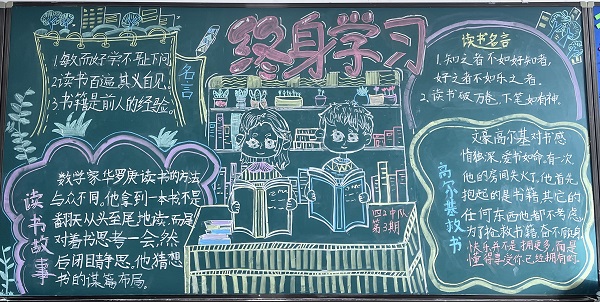 终身学习
1.敏而好学,不耻下问。
2.读书百遍,其义自见。
3.书籍是前人的经验。
名言
读书名言
1.知之者不如好知者,
好之者不如乐之者。
2.读书破万卷,下笔如有神。
读书故事
数学家华罗庚读书的方法
与众不同。他拿到一本书不是
翻开从头至尾地读,而是
对着书思考一会,然
后闭目静思。他猜想
书的谋篇布局。
四2中队
第3期
高尔基救书
文豪高尔基对书感
情极深,爱书如命,有一次
他的房间失火了,他首先
抱起的是书籍,其它的
任何东西他都不考虑。
为了抢救书籍奋不顾身
快乐并不是拥更多,而是
懂得享受你已经拥有的